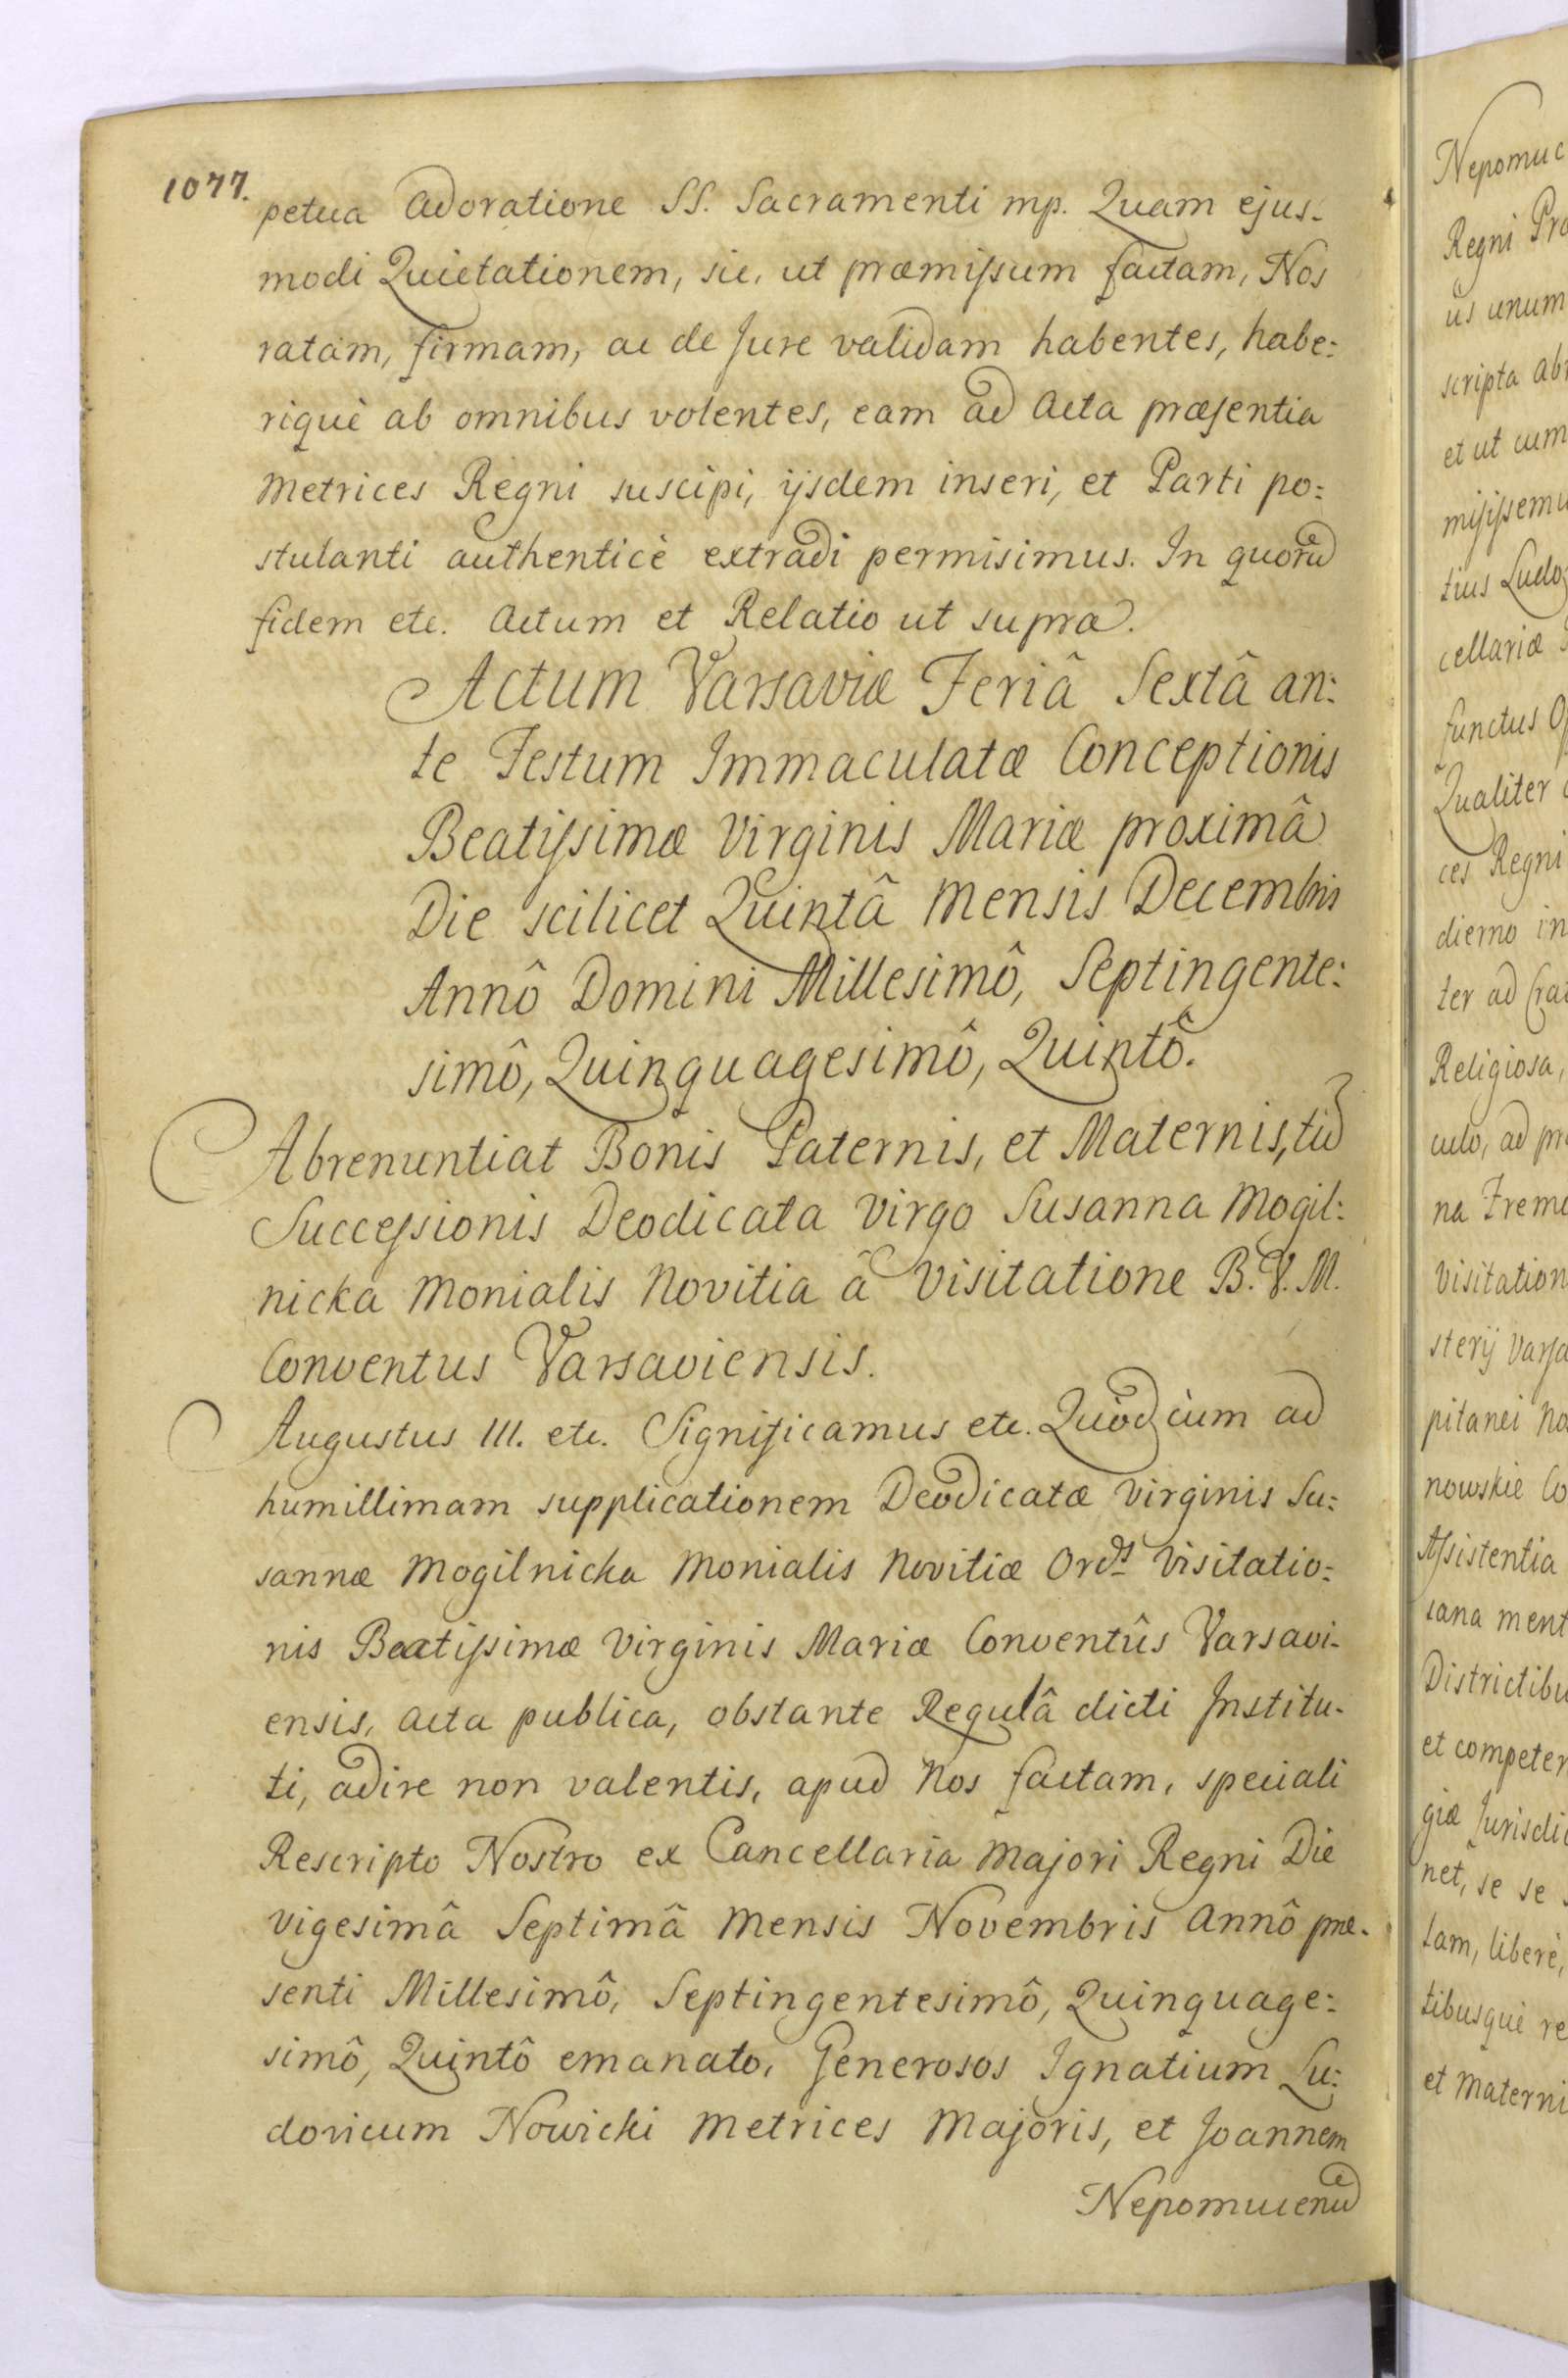 1077.
petua Adoratione SS. Sacramenti mp. Quam ejus-
modi Quietationem, sic, ut præmissum factam, Nos
ratam, firmam, ac de Jure validam habentes, habe:
riquè ab omnibus volentes, eam ad Acta præsentia
Metrices Regni suscipi, ijsdem inseri, et Parti po:
stulanti authenticè extradi permisimus. In quorũ
fidem etc. Actum et Relatio ut supra.
Actum Varsaviæ Feriâ Sextâ an:
te Festum Immaculatæ Conceptionis
Beatissimæ Virginis Mariæ proximâ
Die scilicet Quintâ Mensis Decembris
Annô Domini Millesimô, Septingente:
simô, Quinquagesimô, Quintô.
Abrenuntiat Bonis Paternis, et Maternis, tũ
Successionis Deodicata Virgo Susanna Mogil:
nicka Monialis Novitia â Visitatione B. V. M.
Conventus Varsaviensis.
Augustus III. etc. Significamus etc. Quòd cùm ad
humillimam supplicationem Deodicatæ Virginis Su:
sannæ Mogilnicka Monialis Novitiæ Ordis Visitatio:
nis Beatissimæ Virginis Mariæ Conventûs Varsavi-
ensis, Acta publica, obstante Regulâ dicti Institu-
ti, adire non valentis, apud Nos factam, speciali
Rescripto Nostro ex Cancellaria Majori Regni Die
vigesimâ Septimâ Mensis Novembris Annô præ-
senti Millesimô, Septingentesimô, Quinquage:
simô, Quintô emanato, Generosos Ignatium Lu:
dovicum Nowicki Metrices Majoris, et Joannem
Nepomucenũ
Nepomuc
Regni Pro
us unum
scripta ab
et ut cum
misissemu
tius Ludo
cellariæ
functus
Qualiter
ces Regni
dierno in
ter ad Cra
Religiosa,
culo, ad pr
na Freme
Visitation
sterij Varsa
pitanei No
nowskie Co
Assistentia
sana ment
Districtibu
et competen
giæ Jurisdi
net, se se
tam, liberè,
tibusquè re
et Materni